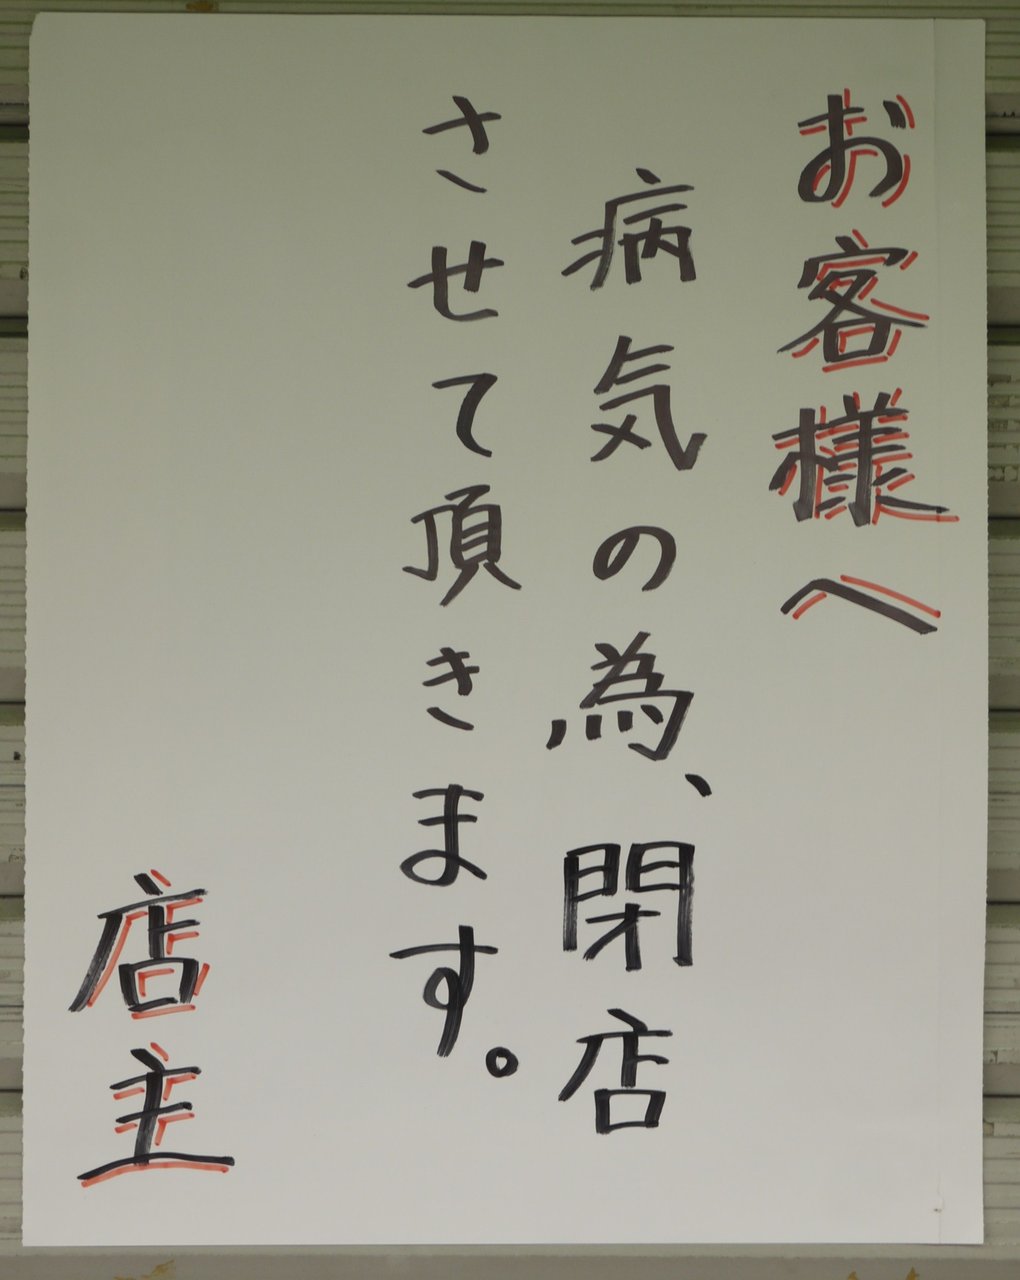 お客様へ
病気の為、閉店
させて頂きます。
店主